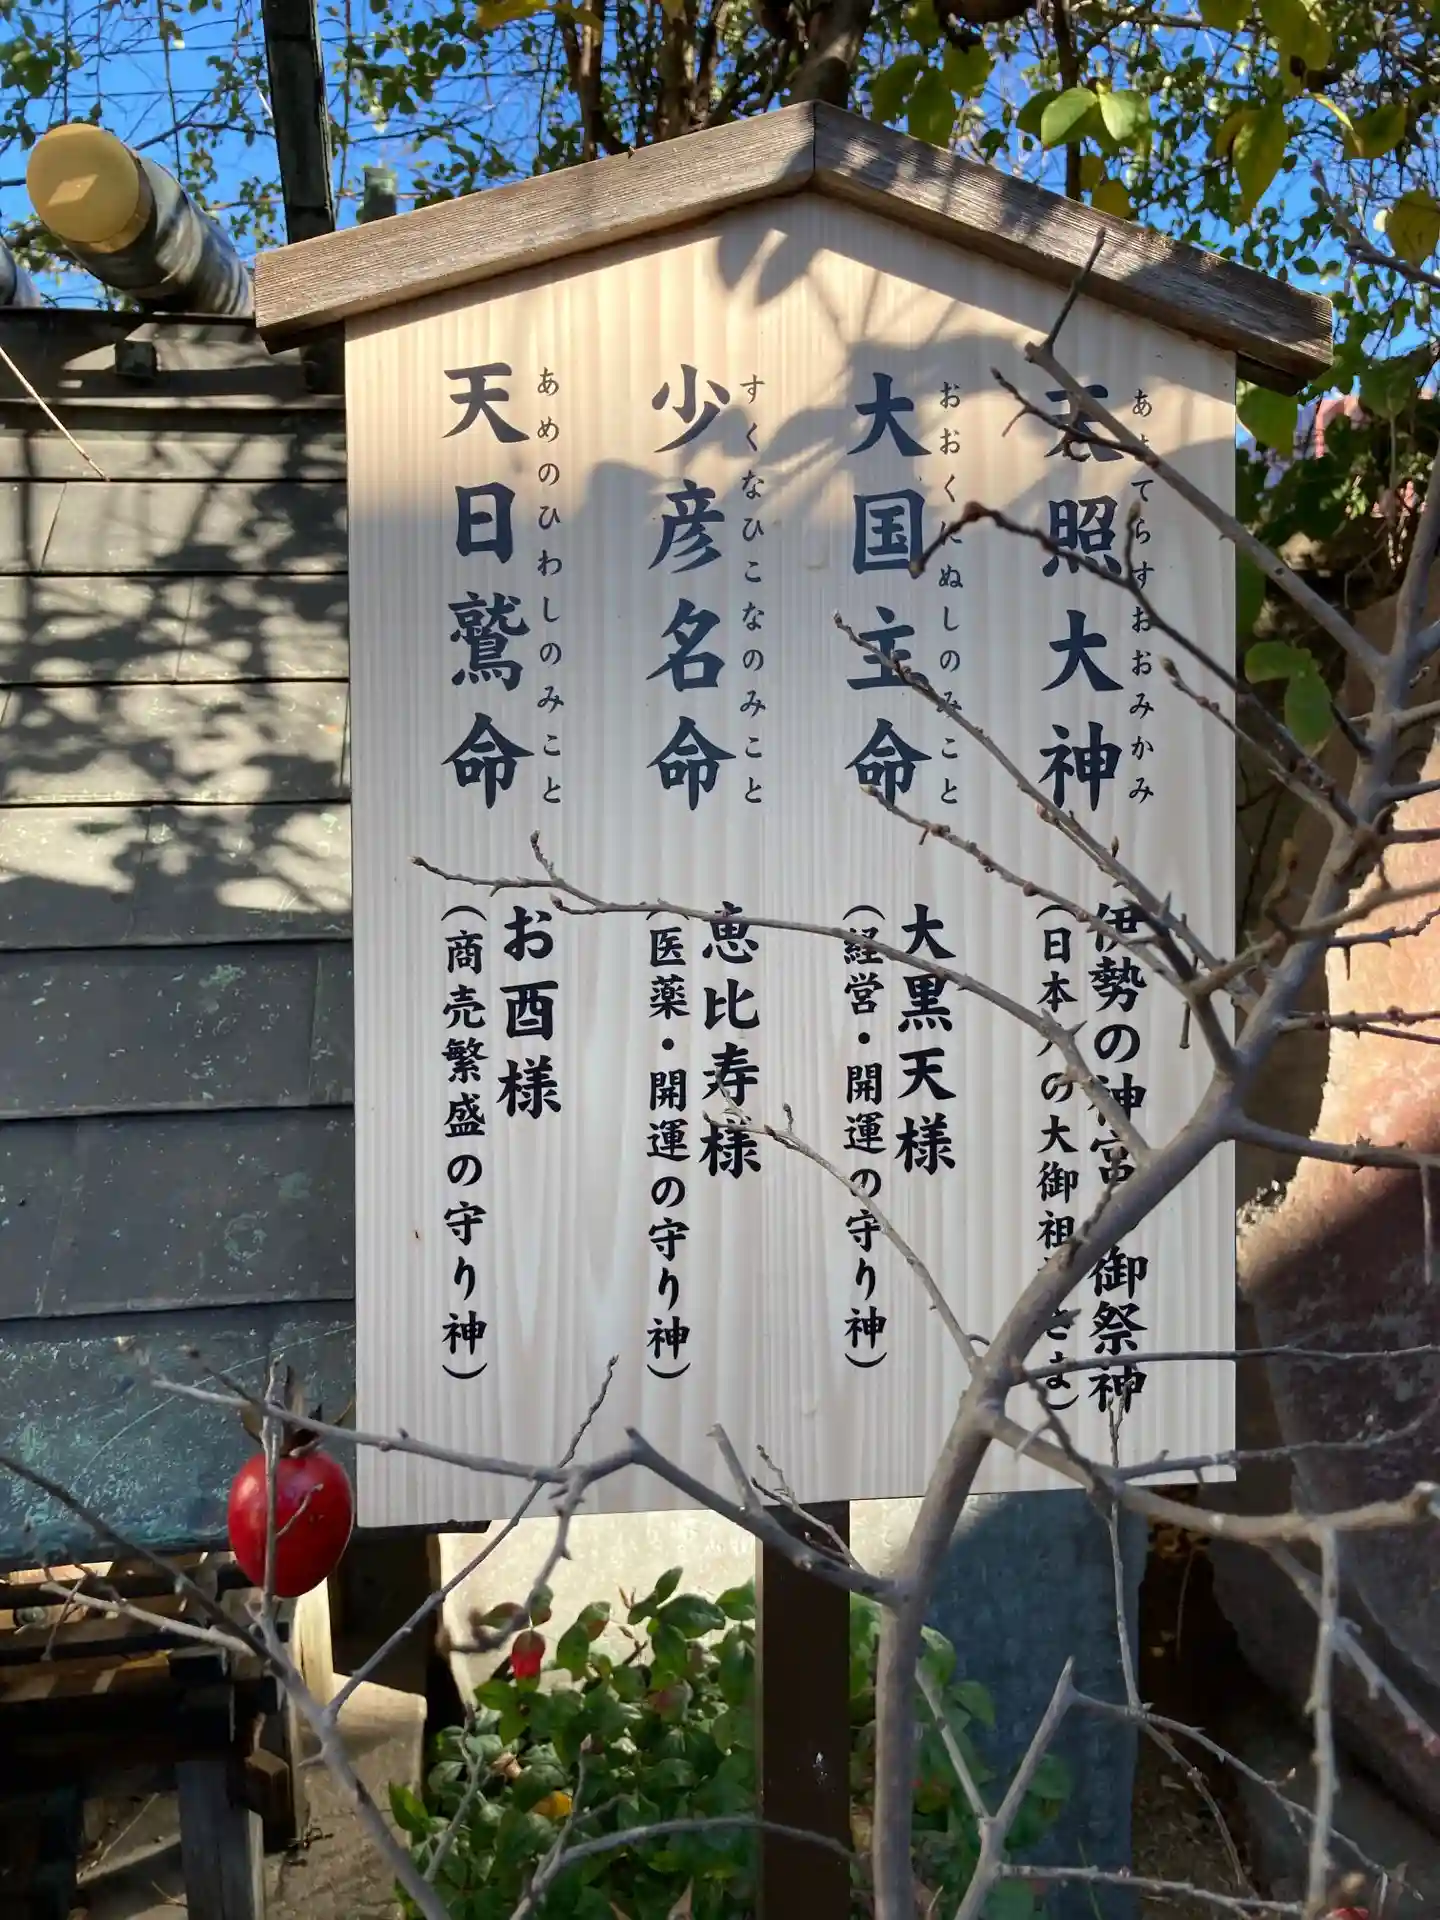 天照大神
あまてらすおおみかみ
伊勢の神宮 御祭神
(日本人の大御祖
さま)
大国主命
おおくにぬしのみこと
大黒天様
(経営・開運の守り神)
少彦名命
すくなひこなのみこと
恵比寿様
(医薬・開運の守り神)
天日鷲命
あめのひわしのみこと
お酉様
(商売繁盛の守り神)